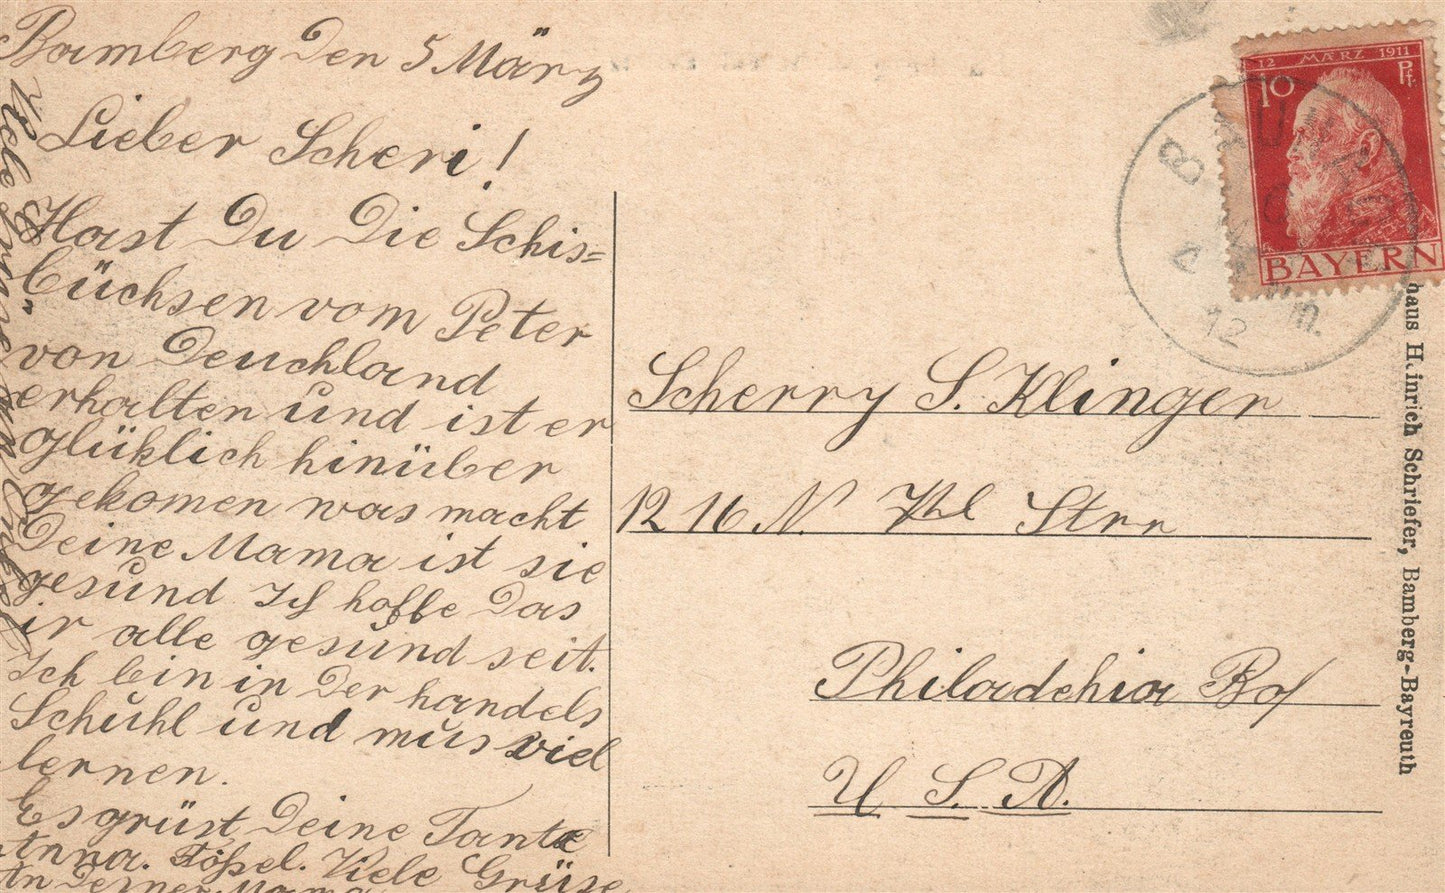 Bamberg den 5 März
Lieber Scheri!
Hast Du die Schis=
büchsen vom Peter
von Deuchland
erhalten und ist er
glüklich hinüber
gekomen was macht
Deine Mama ist sie
gesund Ich hoffe das
ir alle gesund seit.
Ich bin in der handels
Schuhl und mus viel
lernen.
Es grüst Deine Tante
Anna. Viele Grüse
An Deiner Mama
Viele Grüse an
12 MÄRZ 1911
10 Pf
BAYERN
BAUNACH
12
Scherry S. Klinger
1216 N. Str
Philadehia
U. S. A.
haus Heinrich Schriefer, Bamberg-Bayreuth